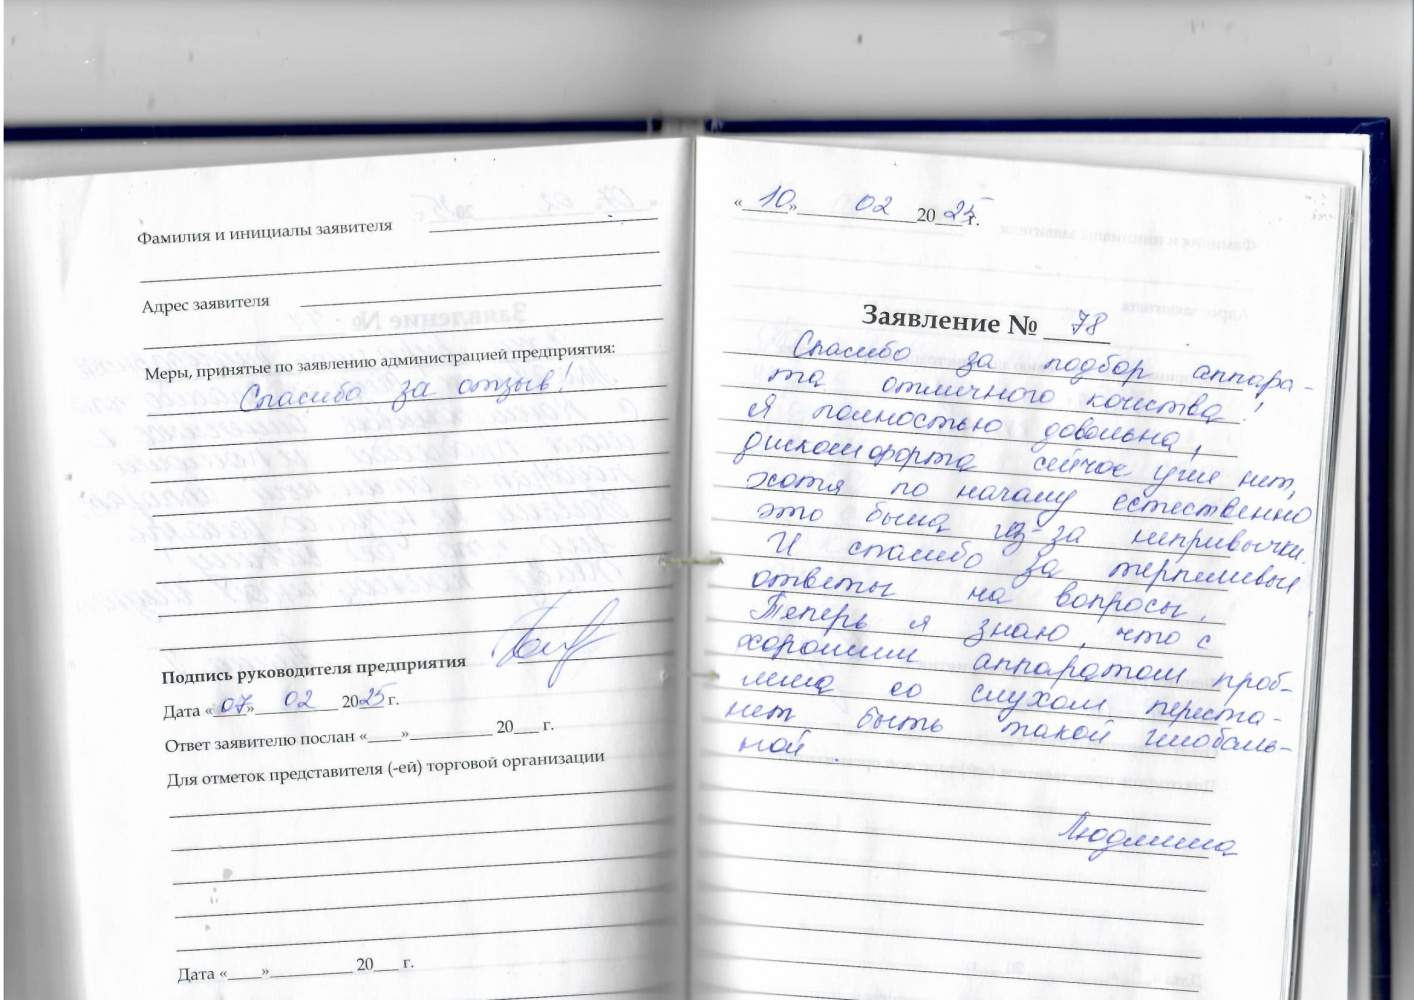 Фамилия и инициалы заявителя
Адрес заявителя
Меры, принятые по заявлению администрацией предприятия:
Спасибо за отзыв!
Подпись руководителя предприятия
Дата «07» 02 2025 г.
Ответ заявителю послан «____»__________ 20___ г.
Для отметок представителя (-ей) торговой организации
Дата «____»__________ 20___ г.
«10» 02 2025 г.
Заявление № 78
Спасибо за подбор аппара-
та отличного качества!
Я полностью довольна,
дискомфорта сейчас уже нет,
хотя по началу естественно
это было из-за непривычки.
И спасибо за терпеливые
ответы на вопросы.
Теперь я знаю, что с
хорошим аппаратом проб-
лема со слухом переста-
нет быть такой глобаль-
ной.
Людмила